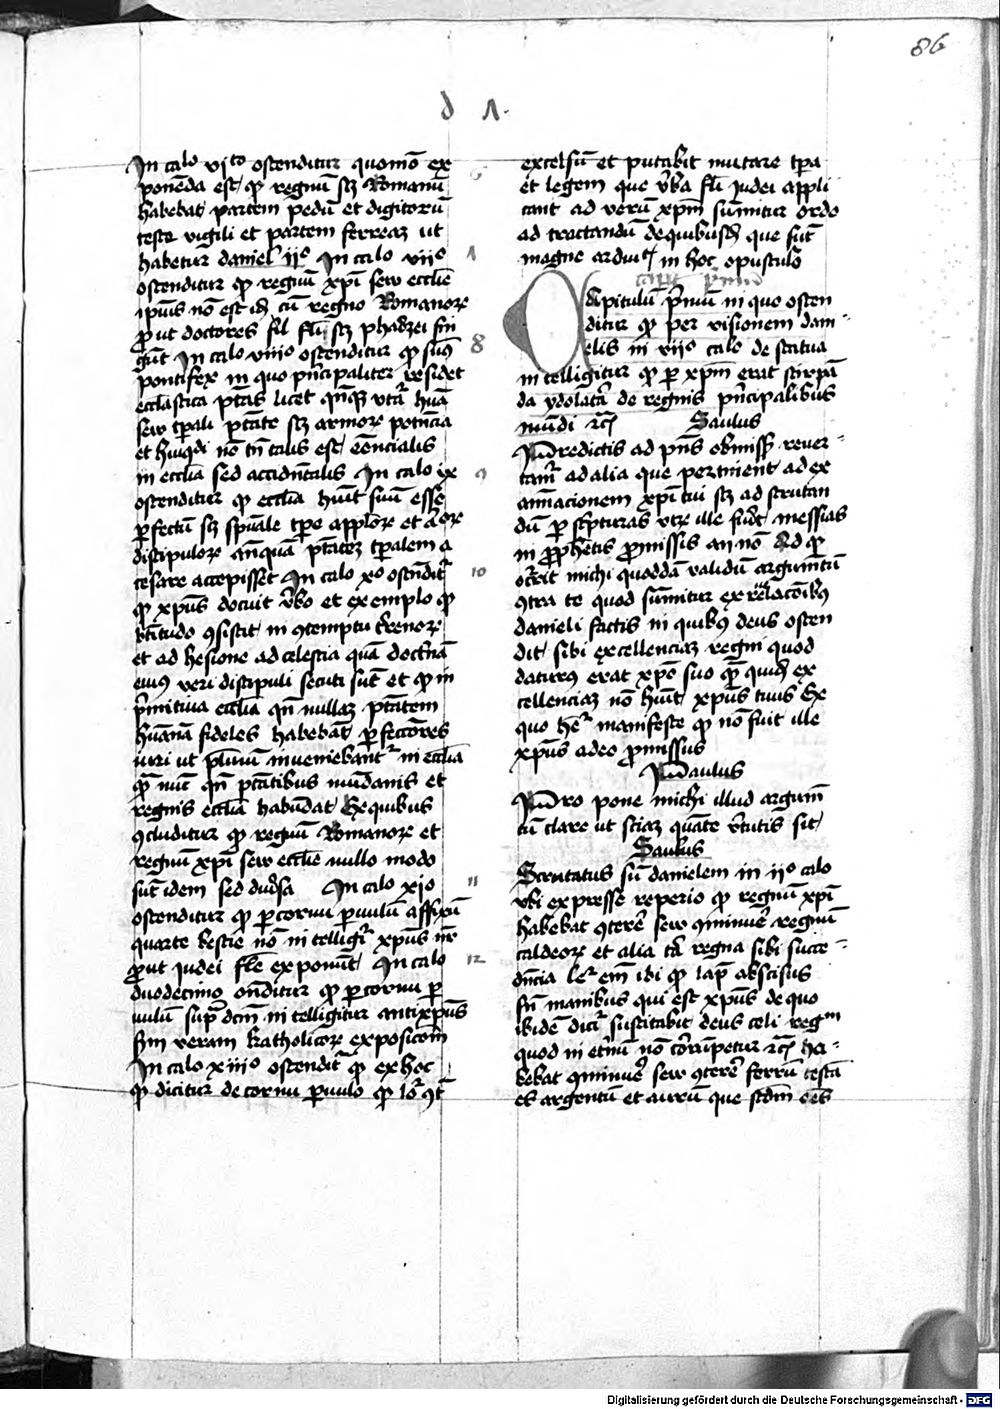 86
d 1.
In calo vito ostenditur quomō ex
ponēda est qꝫ regnū scꝫ Romanū
habebat partem pedū et digitorū
teste vigili et partem ferreaꝫ ut
habetur daniel iiº In calo viiº
ostenditur qꝫ regnū xpī seu ecclie
ipīus nō est idē cū regno Romanoꝝ
ꝓut doctores
gūt In calo viiiº ostenditur qꝫ sūꝰ
pontifex in quo pn̄cipaliter residet
ecclāstica ptās licet
seu tꝑali ptāte scꝫ armoꝝ potn̄cia
et
in ecclīa sed accidn̄talis In calo ix
ostenditur qꝫ ecclīa hūit suū esse
ꝑfectū scꝫ spūale tꝑe applōꝝ et
discipuloꝝ ptātē tꝑalem a
cesare accepisset In calo xº ostēdit᷑
qꝫ xpūs docuit v̄bo et exemplo qꝫ
btītudo ꝯsistit in ꝯtemptu t̄renoꝝ
et adhesione ad celestia quā doct̄nā
eiuꝰ veri discipuli secuti sūt et qꝫ in
p̄mitiua ecclīa qn̄ nullaꝫ ptātem
hūanā fideles habebāt ꝑfectiōres
viri ut plurimū inueniebant᷑ in ecclīa
qm̄ nūc qn̄ ptātibus mūdanis et
regnis ecclīa habūdat Ex quibus
ꝯcluditur qꝫ regnū Romanoꝝ et
regnū xpī seu ecclie nullo modo
sūt idem sed diūsa In calo xiº
ostenditur qꝫ ꝑ cornu ꝑuulū affixū
quarte bestie nō intelligit᷑ xpūs nr̄
ꝓut iudei exponūt In calo
duodecimo on̄ditur qꝫ ꝑ cornu ꝑ
uulū sup̄ dcm̄ intelligitur antixpūs
scdm veram katholicoꝝ exposicōm̄
In calo xiiiº ostendit᷑ qꝫ ex hoc
qꝫ dicitur de cornu ꝑuulo qꝫ
6
1
8
9
10
11
12
excelsū et putabit mutare tꝑa
et legem que v̄ba iudei appli
cant ad verū xpm̄ sūmitur ordo
ad tractandū de quibusdā que sūt
magne arduit᷑ in hoc opusculo
Capitulū p̄mū in quo osten
ditur qꝫ per visionem dani
elis in iiº calo de statua
intelligitur qꝫ ꝑ xpm̄ erat
da ydolat̄a de regnis pn̄cipalibus
mūdi ꝛcꝫ Saulus
Predictis ad pn̄s obmissꝭ reuer
tam᷑ ad alia que pertinent ad ex
aīacionem xpī tui scꝫ ad scrutan
dū ꝑ scp̄turas vtꝝ ille fuīt messias
in ꝓphetis ꝓmissis an nō Ad qꝫ
oc̄rit michi quoddā validū argum̄tū
ꝯtra te quod sūmitur ex reuelacōibꝰ
danieli factis in quibꝰ deus osten
dit sibi excellenciaꝫ regni quod
daturꝰ erat xpō suo qm̄ quidē ex
cellenciaꝫ nō hūit xpūs tuus Ex
quo het᷑ manifeste qꝫ nō fuit ille
xpūs a deo ꝓmissus
Paulus
Pro pone michi illud argum̄
tū clare ut sciaꝫ quāte v̄tutis sit
Saulus
Scrutatus sū danielem in iiº calo
vbi expresse reperio qꝫ regnū xpī
habebat ꝯterē seu ꝯminuē regnū
caldeoꝝ et alia tīa regna sibi succe
dn̄cia let᷑ em̄ ibi qꝫ lapꝭ abscisus
sn̄ manibus qui est xpūs de quo
ibidē dicit᷑ suscitabit deus celi regm
quod in et̄nū nō corrūpetur ꝛcꝫ ha
bebat ꝯminuē seu ꝯterē ferrū testā
es argentū et aurū que scdm̄ eēs
Digitalisierung gefördert durch die Deutsche Forschungsgemeinschaft - DFG